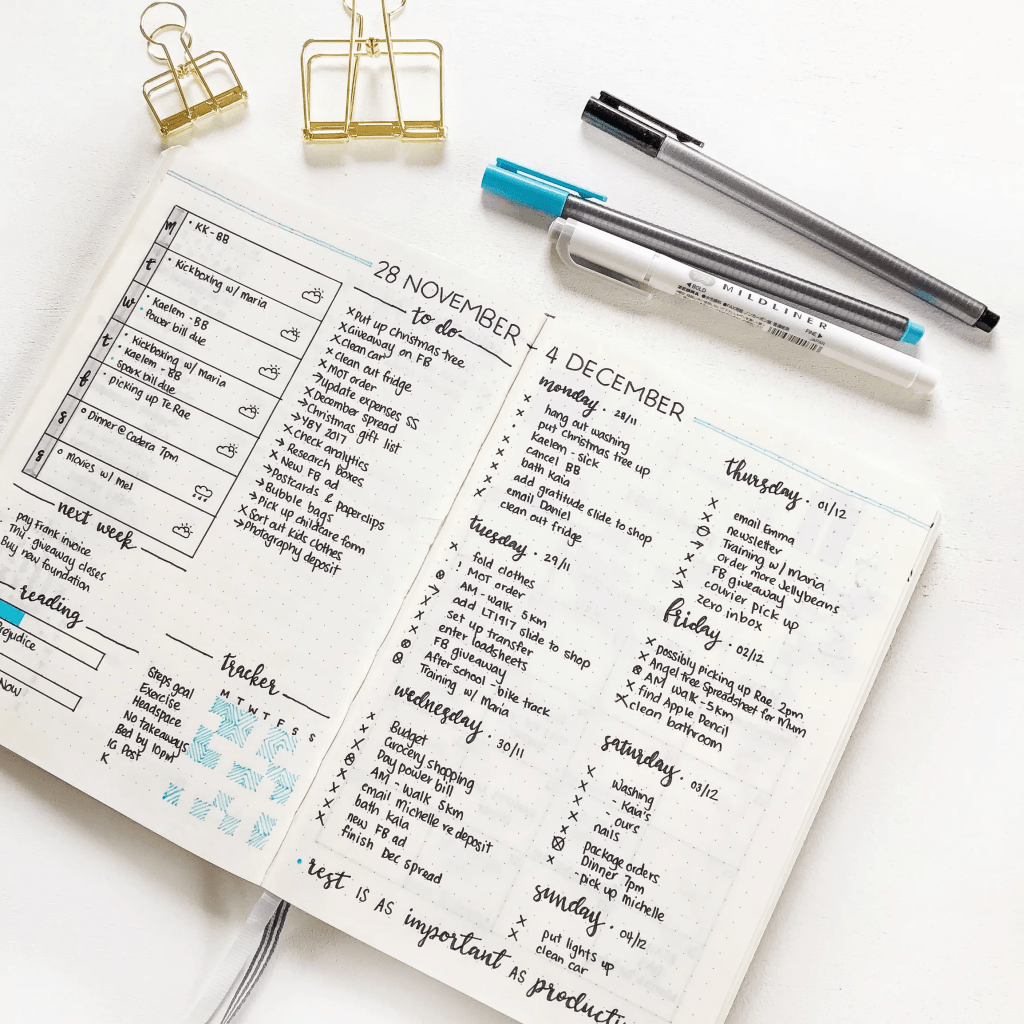 28 NOVEMBER
m
• KK - BB
t
• Kickboxing w/ Maria
w
• Kaelem - BB
• Power bill due
t
• Kickboxing w/ Maria
• Kaelem - BB
• 6parx bill due
f
picking up Te Rae
s
○ Dinner @ Cadera 7pm
s
○ Movies w/ Mel
to do
× Put up Christmas tree
× Giveaway on FB
× Clean car
× Clean out fridge
× MOT order
→ Update expenses SS
× December spread
→ Christmas gift list
→ YBY 2017
× Check analytics
→ Research boxes
× New FB ad
→ Postcards & paperclips
→ Bubble bags
→ Pick up childcare form
× Sort out kids clothes
→ Photography deposit
next week
pay Frank invoice
Thu* giveaway closes
Buy new foundation
reading
Prejudice
Now
tracker
M T W T F S S
Steps goal
Exercise
Headspace
No takeaways
Bed by 10pm
IG Post
K
4 DECEMBER
monday • 28/11
× hang out washing
• put Christmas tree up
× Kaelem - sick
× cancel BB
× bath Kaia
× add gratitude slide to shop
× email Daniel
× clean out fridge
tuesday • 29/11
× fold clothes
! MOT order
⊗ AM - walk 5km
→ add LT1917 slide to shop
× set up transfer
× enter loadsheets
× FB giveaway
⊗ After school - bike track
⊗ Training w/ Maria
wednesday • 30/11
× Budget
× Grocery shopping
× Pay power bill
⊗ AM - walk 5km
× email Michelle re deposit
× bath Kaia
× new FB ad
× finish Dec spread
thursday • 01/12
× email Emma
× newsletter
⊖ Training w/ Maria
→ order more Jellybeans
× FB giveaway
→ courier pick up
→ zero inbox
friday • 02/12
× possibly picking up Rae 2pm
× Angel tree Spreadsheet for Mum
⊗ AM walk - 5km
× find Apple Pencil
× clean bathroom
saturday • 03/12
× Washing
× - Kaia's
× - ours
× nails
× package orders
⊗ Dinner 7pm
× - pick up Michelle
sunday • 04/12
× put lights up
× clean car
• rest IS AS important AS producti
MILDLINER
◀ BOLD
ZEBRA
FINE ▶
JAPAN